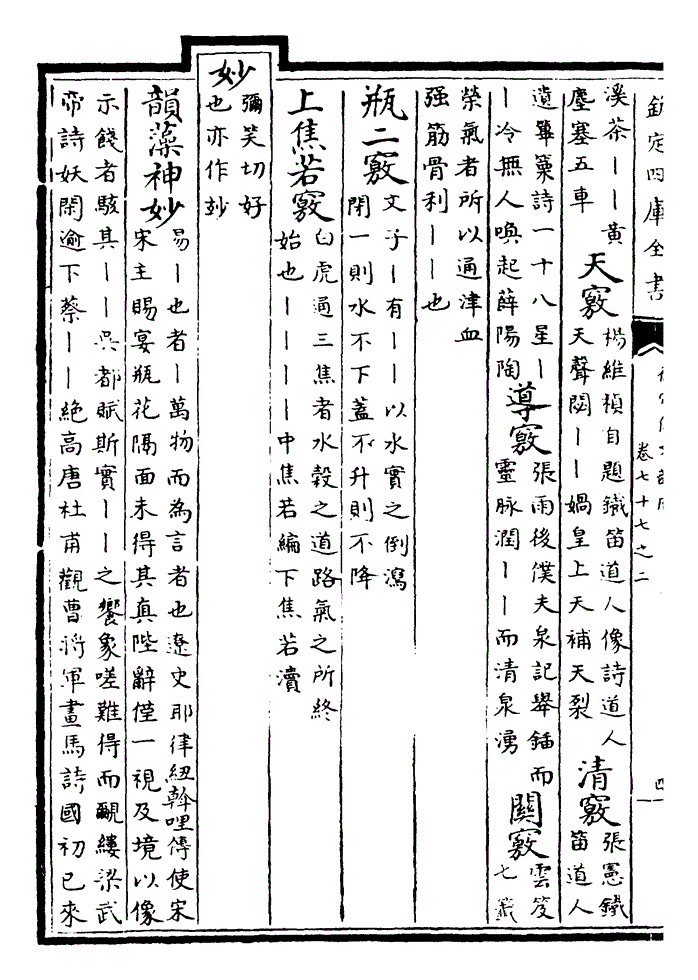 欽定四庫全書
卷七十七之二
四
溪茶丨丨黄
塵塞五車
天竅
楊維楨自題鐵笛道人像詩道人
天聲閟丨丨媧皇上天補天裂
清竅
張憲鐵
笛道人
遺篳篥詩一十八星丨
丨冷無人喚起薛陽陶
導竅
張雨後僕夫泉記舉鍤而
靈脉潤丨丨而清泉湧
關竅
雲笈
七籖
榮氣者所以通津血
强筋骨利丨丨也
瓶二竅
文子丨有丨丨以水實之倒瀉
閉一則水不下蓋不升則不降
上焦若竅
白虎通三焦者水榖之道路氣之所終
始也丨丨丨丨中焦若編下焦若瀆
妙
彌笑切好
也亦作玅
韻藻神妙
易丨也者丨萬物而為言者也遼史耶律紐斡哩傳使宋
宋主賜宴瓶花隔面未得其真陛辭僅一視及境以像
示餞者駭其丨丨吳都賦斯實丨丨之饗象嗟難得而覼縷梁武
帝詩妖閑逾下蔡丨丨絶高唐杜甫觀曹將軍畫馬詩國初已來